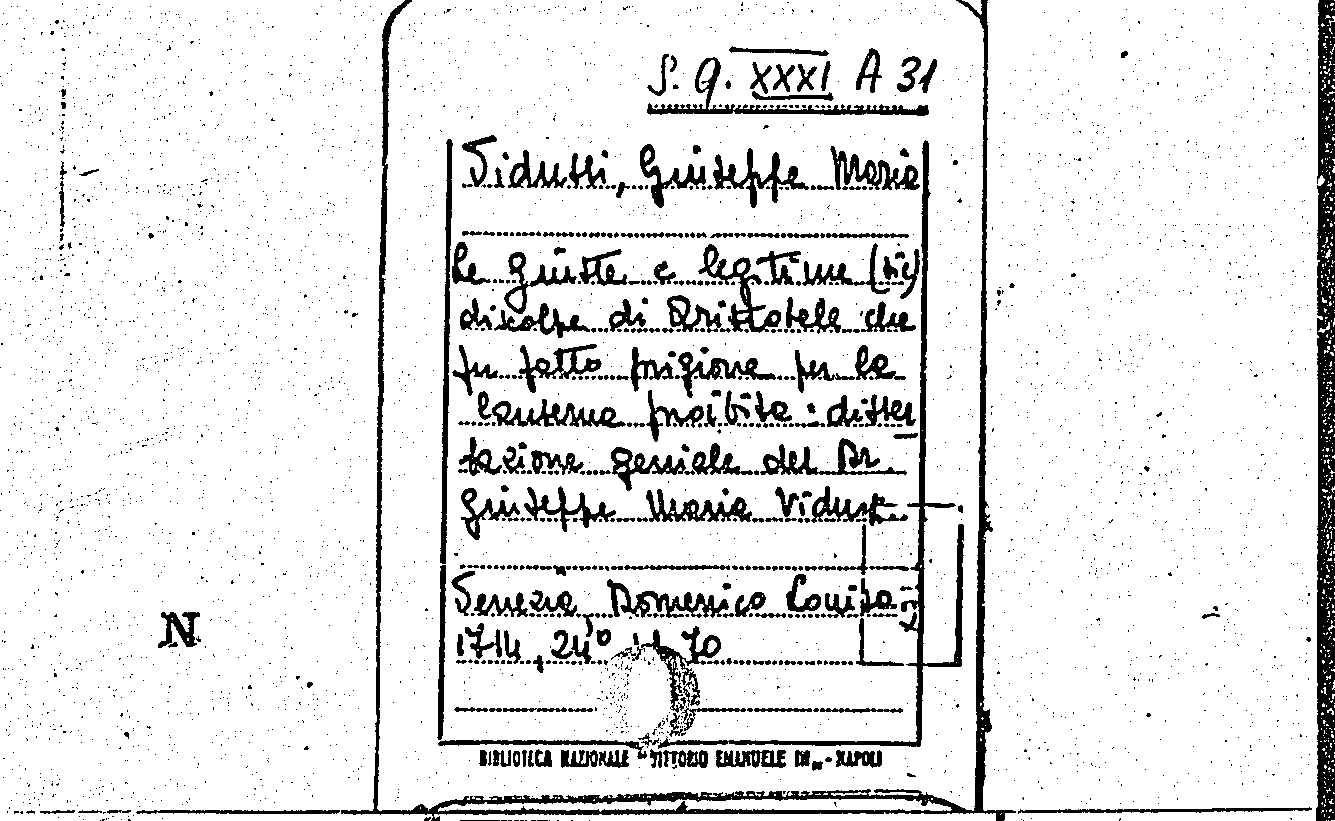 S. Q. XXXI A 31
Vidussi, Giuseppe Maria
Le giuste e legitime (sic)
discolpe di Aristotele che
fu fatto prigione per la
lanterna proibita : disser
tazione geniale del Dr.
Giuseppe Maria Viduss..
Venezia, Domenico Lovisa
1714, 24° 70
BIBLIOTECA NAZIONALE "VITTORIO EMANUELE III" - NAPOLI
N